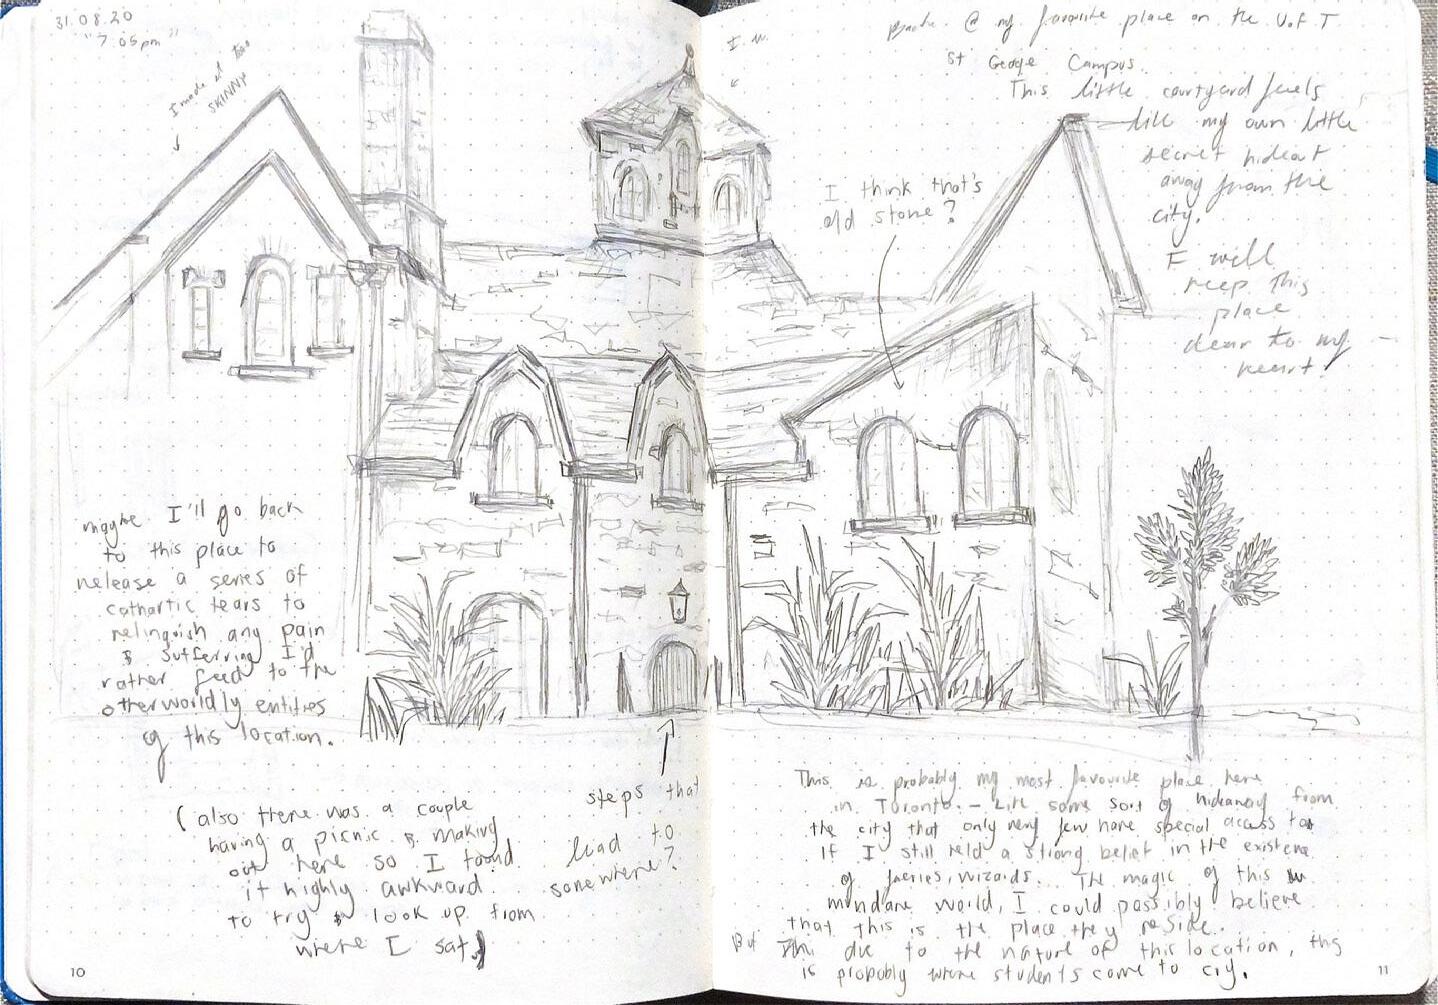 31.08.20
"7:05pm"
I made it too
SKINNY
I
@ my favourite place on the U.of.T
St George Campus.
This little courtyard feels
like my own little
secret hideout
away from the
city.
I will
keep this
place
dear to my
heart.
I think that's
old stone?
maybe I'll go back
to this place to
release a series of
cathartic tears to
relinquish any pain
& suffering I'd
rather feed to the
otherworldly entities
of this location.
(also there was a couple
having a picnic & making
out here so I found
it highly awkward
to try & look up from
where I sat)
steps that
lead to
somewhere?
This is probably my most favourite place here
in Toronto - Like some sort of hideaway from
the city that only very few have special access to
If I still held a strong belief in the existence
of faeries, wizards... The magic of this
mundane world, I could possibly believe
that this is the place they reside..
But due to the nature of this location, this
is probably where students come to cry.
10
11